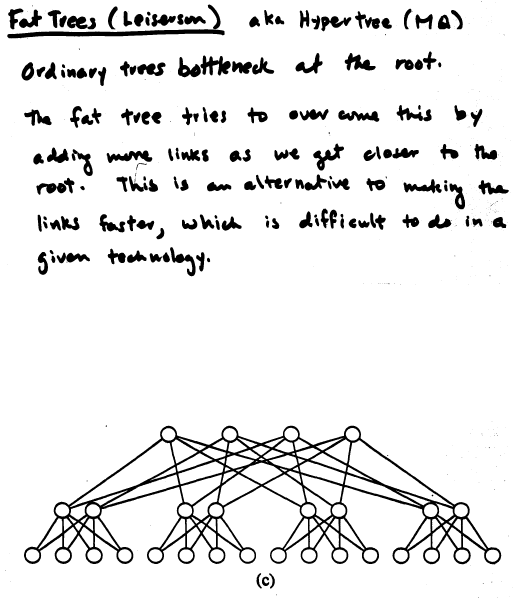 Fat Trees (Leiserson) aka Hypertree (MQ)
Ordinary trees bottleneck at the root.
The fat tree tries to over come this by
adding more links as we get closer to the
root. This is an alternative to making the
links faster, which is difficult to do in a
given technology.
(c)